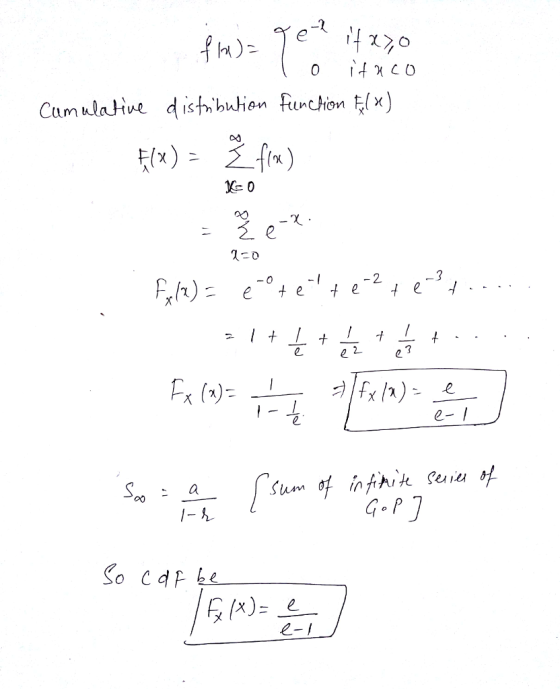 f(x) = { e^-x if x≥0
0 if x<0
Cumulative distribution Function Fx(x)
Fx(x) = ∞ Σ x=0 f(x)
= ∞ Σ x=0 e^-x.
Fx(x) = e^-0 + e^-1 + e^-2 + e^-3 + .....
= 1 + 1/e + 1/e^2 + 1/e^3 + .....
Fx(x) = 1/(1 - 1/e) ⇒ fx(x) = e/(e-1)
S∞ = a/(1-r) [sum of infinite series of
G.P]
So cdF be
Fx(x) = e/(e-1)